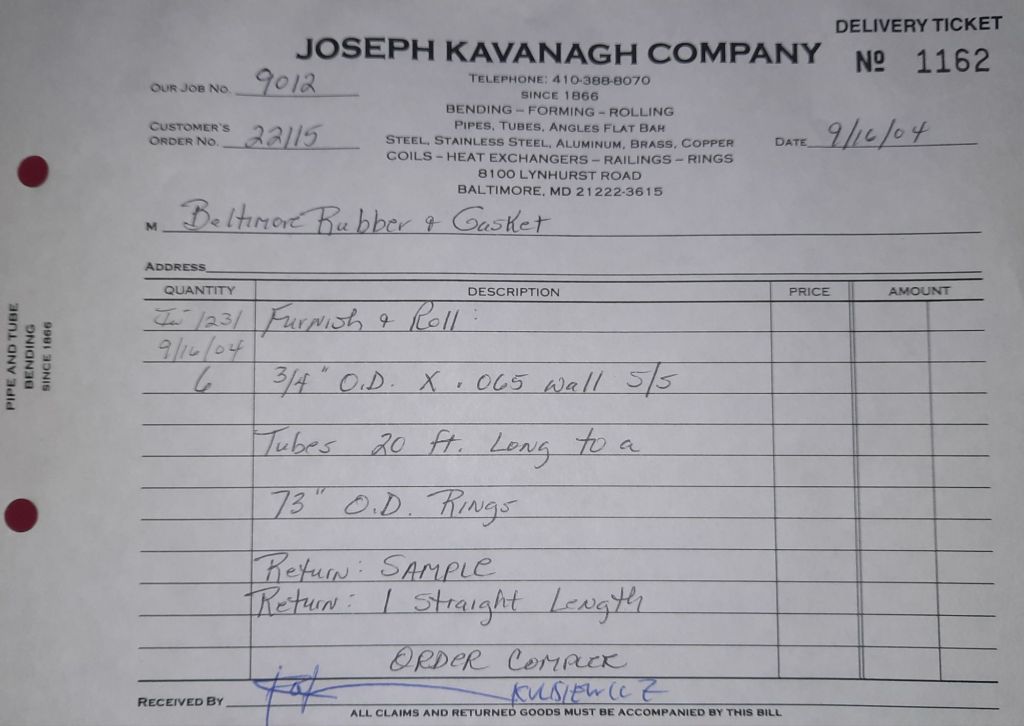 DELIVERY TICKET
JOSEPH KAVANAGH COMPANY
Nº 1162
TELEPHONE: 410-388-8070
OUR JOB NO. 9012
SINCE 1866
BENDING – FORMING – ROLLING
PIPES, TUBES, ANGLES FLAT BAR
CUSTOMER'S
ORDER NO. 22115
STEEL, STAINLESS STEEL, ALUMINUM, BRASS, COPPER
DATE 9/16/04
COILS – HEAT EXCHANGERS – RAILINGS – RINGS
8100 LYNHURST ROAD
BALTIMORE, MD 21222-3615
M Baltimore Rubber & Gasket
ADDRESS
QUANTITY DESCRIPTION PRICE AMOUNT
1231 Furnish & Roll:
9/16/04
6 3/4" O.D. X .065 wall S/S
Tubes 20 ft. Long to a
73" O.D. Rings
Return: SAMPLE
Return: 1 Straight Length
ORDER COMPLETE
RECEIVED BY
ALL CLAIMS AND RETURNED GOODS MUST BE ACCOMPANIED BY THIS BILL
PIPE AND TUBE
BENDING
SINCE 1866